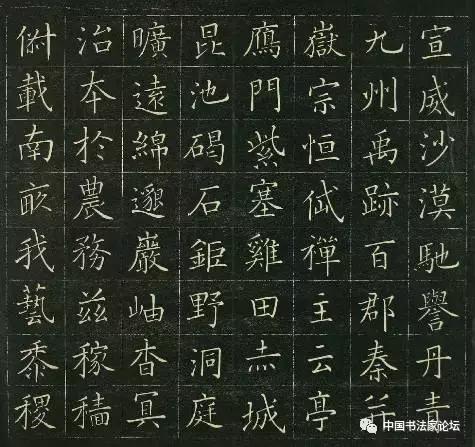 宣威沙漠馳譽丹青
九州禹跡百郡秦并
嶽宗恒岱禪主云亭
鴈門紫塞雞田赤城
昆池碣石鉅野洞庭
曠遠綿邈巖岫杳冥
治本於農務茲稼穡
俶載南畝我藝黍稷
中国书法家论坛